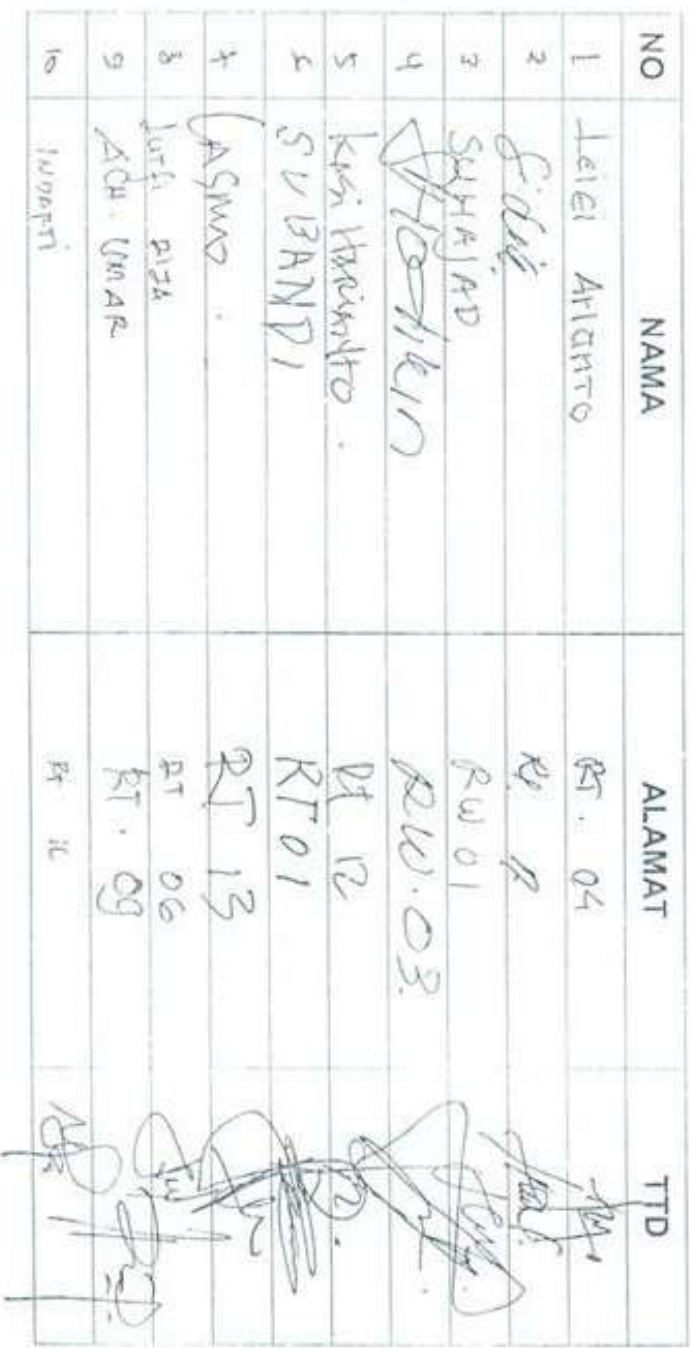 NO NAMA ALAMAT TTD
1 Arianto RT. 04
2 Sidik
3 SUHAJAD RW 01
4 RW. 03.
5 Harianto. Rt 12
6 SUBANDI RT 01
7 CASMO. RT 13
8 Lutfi RIZA RT 06
9 ACH. UMAR RT. 09
10 INDARTI Rt